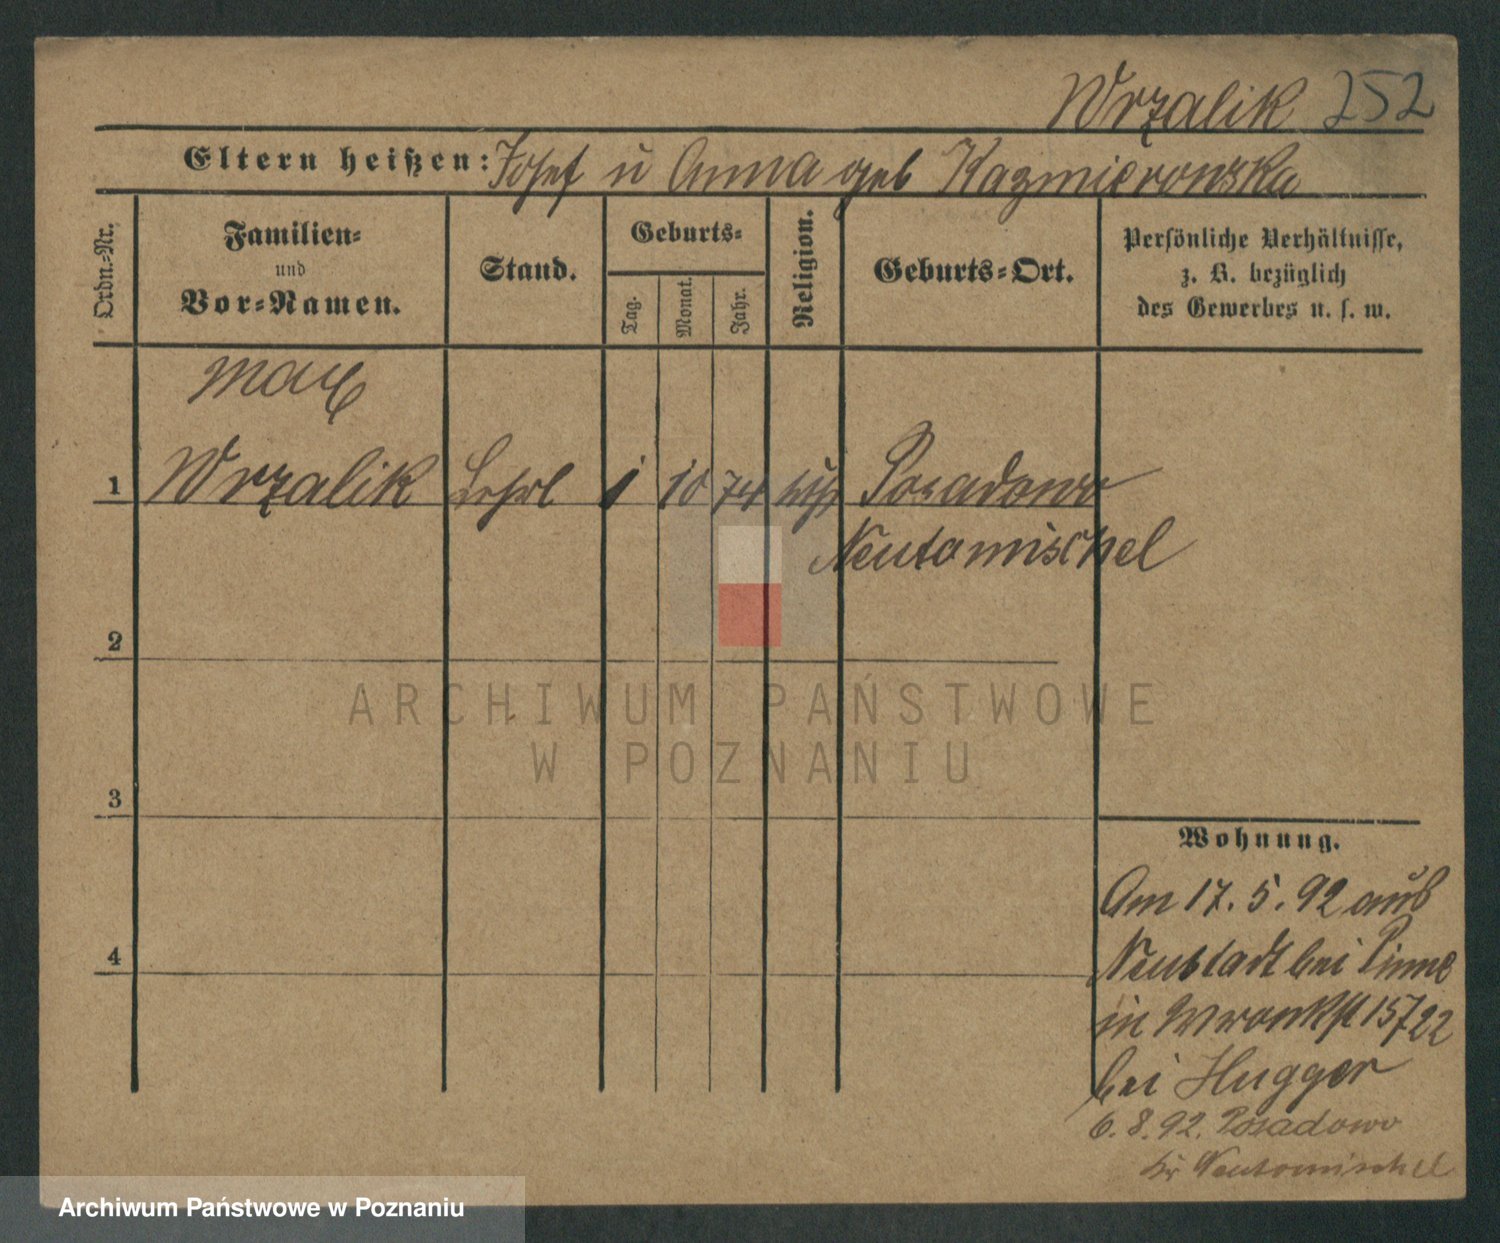 Wrzalik 252
Eltern heißen: Josef u Anna geb Kazmierowska
Ordn.-Nr.
Familien-
und
Vor-Namen.
Stand.
Geburts-
Tag.
Monat.
Jahr.
Religion.
Geburts-Ort.
Persönliche Verhältnisse,
z. B. bezüglich
des Gewerbes u. s. w.
Max
1 Wrzalik Lehrl 1 10 74 kth Posadowo
Neutomischel
2
3
4
Wohnung.
Am 17. 5. 92 aus
Neustadt bei Pinne
in Wronkst 15722
bei Hugger
6. 8. 92. Posadowo
Kr Neutomischel
ARCHIWUM PAŃSTWOWE
W POZNANIU
Archiwum Państwowe w Poznaniu